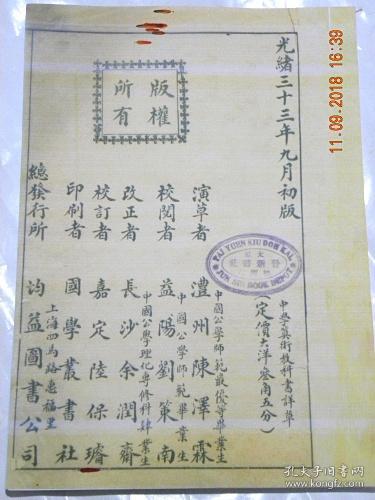 光緒三十三年九月初版
版權
所有
中學算術教科書詳草
(定價大洋叁角五分)
中國公學師範最優等畢業生
演草者 澧州陳澤霖
中國公學師範畢業生
校閱者 益陽劉策南
中國公學理化專修科肄業生
改正者 長沙余潤齋
校訂者 嘉定陸保璿
印刷者 國學叢書社
上海四馬路惠福里
總發行所 均益圖書公司
TAI YUEN KIU DOW KAI
JUN SIN BOOK DEPOT
11.09.2018 16:39
孔夫子旧书网